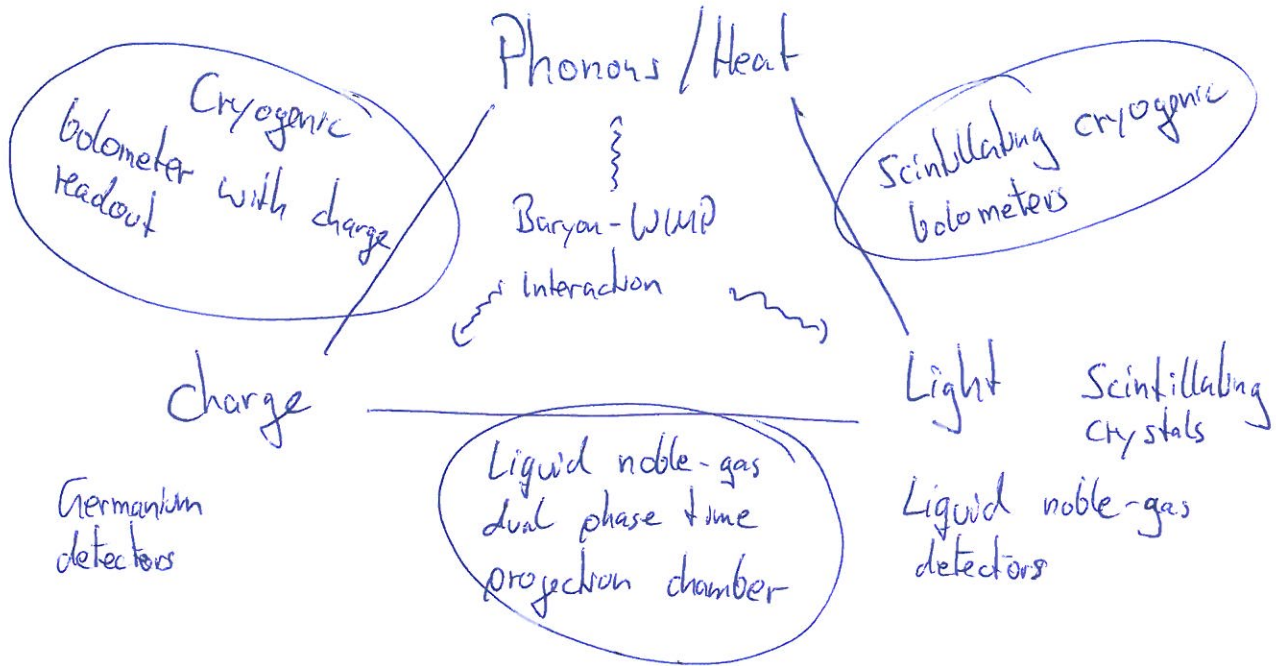 Phonons / Heat
Cryogenic
bolometer with charge
readout
Scintillating cryogenic
bolometers
Baryon-WIMP
Interaction
Charge
Light
Scintillating
crystals
Germanium
detectors
Liquid noble-gas
dual phase time
projection chamber
Liquid noble-gas
detectors